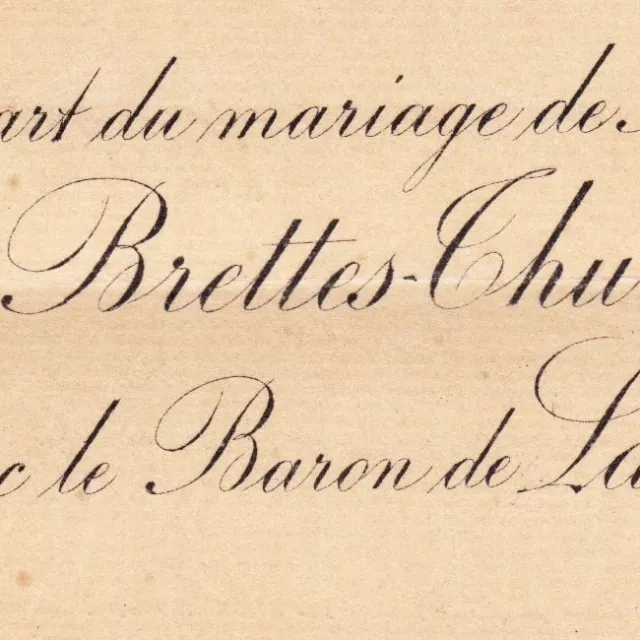 art du mariage de
Brettes-Thu
c le Baron de La